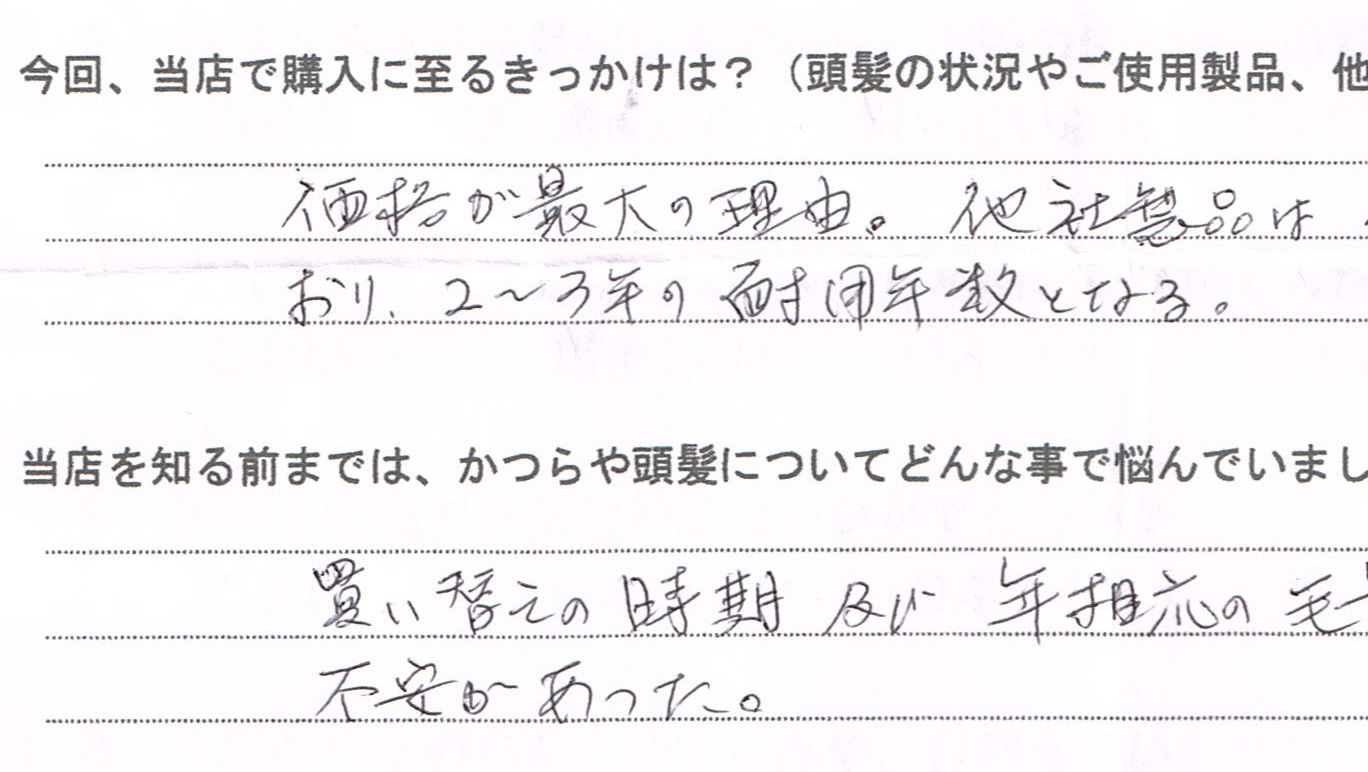 今回、当店で購入に至るきっかけは？（頭髪の状況やご使用製品、他
価格が最大の理由。他社製品は
おり、2～3年の耐用年数となる。
当店を知る前までは、かつらや頭髪についてどんな事で悩んでいまし
買い替えの時期及び年相応の毛
不安があった。